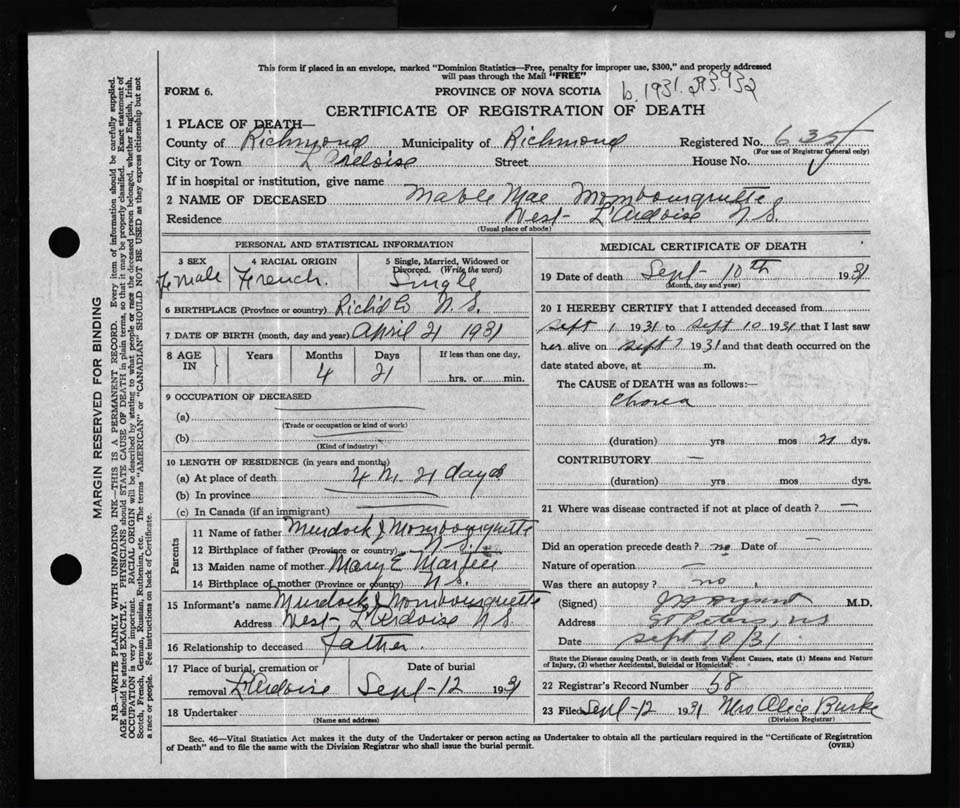 This form if placed in an envelope, marked "Dominion Statistics—Free, penalty for improper use, $300," and properly addressed
will pass through the Mail "FREE"
FORM 6.
PROVINCE OF NOVA SCOTIA
b. 1931.
CERTIFICATE OF REGISTRATION OF DEATH
1 PLACE OF DEATH—
County of Richmond Municipality of Richmond Registered No. 635
(For use of Registrar General only)
City or Town L'Ardoise Street House No.
If in hospital or institution, give name
2 NAME OF DECEASED Mable Mae Mombourquette
Residence West- L'Ardoise N S.
(Usual place of abode)
PERSONAL AND STATISTICAL INFORMATION
3 SEX Female
4 RACIAL ORIGIN French.
5 Single, Married, Widowed or Divorced. (Write the word) Single
6 BIRTHPLACE (Province or country) Richd Co N.S.
7 DATE OF BIRTH (month, day and year) April 21 1931
8 AGE IN
Years Months 4 Days 21
If less than one day,
hrs. or min.
9 OCCUPATION OF DECEASED
(a)
(Trade or occupation or kind of work)
(b)
(Kind of industry)
10 LENGTH OF RESIDENCE (in years and months)
(a) At place of death 4 M. 21 days
(b) In province
(c) In Canada (if an immigrant)
Parents
11 Name of father Murdock J Mombourquette
12 Birthplace of father (Province or country) N.S.
13 Maiden name of mother Mary E
14 Birthplace of mother (Province or country) N S.
15 Informant's name Murdock J Mombourquette
Address West- L'Ardoise N S.
16 Relationship to deceased Father.
17 Place of burial, cremation or removal L'Ardoise
Date of burial Sept-12 1931
18 Undertaker
(Name and address)
MEDICAL CERTIFICATE OF DEATH
19 Date of death Sept- 10th 1931
(Month, day and year)
20 I HEREBY CERTIFY that I attended deceased from
Sept 1 1931 to Sept 10 1931 that I last saw
her alive on Sept 7 1931 and that death occurred on the
date stated above, at m.
The CAUSE of DEATH was as follows:—
(duration) yrs mos 21 dys.
CONTRIBUTORY —
(duration) yrs mos dys.
21 Where was disease contracted if not at place of death? —
Did an operation precede death? no Date of —
Nature of operation —
Was there an autopsy? no
(Signed) M.D.
Address St Peters, NS
Date Sept 10/31
State the Disease causing Death, or in death from Violent Causes, state (1) Means and Nature
of Injury, (2) whether Accidental, Suicidal or Homicidal.
22 Registrar's Record Number 58
23 Filed Sept-12 1931 Mrs Alice Burke
(Division Registrar)
Sec. 46—Vital Statistics Act makes it the duty of the Undertaker or person acting as Undertaker to obtain all the particulars required in the "Certificate of Registration
of Death" and to file the same with the Division Registrar who shall issue the burial permit.
(OVER)
MARGIN RESERVED FOR BINDING
N.B.—WRITE PLAINLY WITH UNFADING INK—THIS IS A PERMANENT RECORD. Every item of information should be carefully supplied.
AGE should be stated EXACTLY. PHYSICIANS should STATE CAUSE OF DEATH in plain terms, so that it may be properly classified. Exact statement of
OCCUPATION is very important. RACIAL ORIGIN will be described by stating to what people or race the deceased person belonged, whether English, Irish,
Scotch, French, German, Russian, Ruthenian, etc. The terms "AMERICAN" or "CANADIAN" SHOULD NOT BE USED as they express citizenship but not
a race or people. See instructions on back of Certificate.